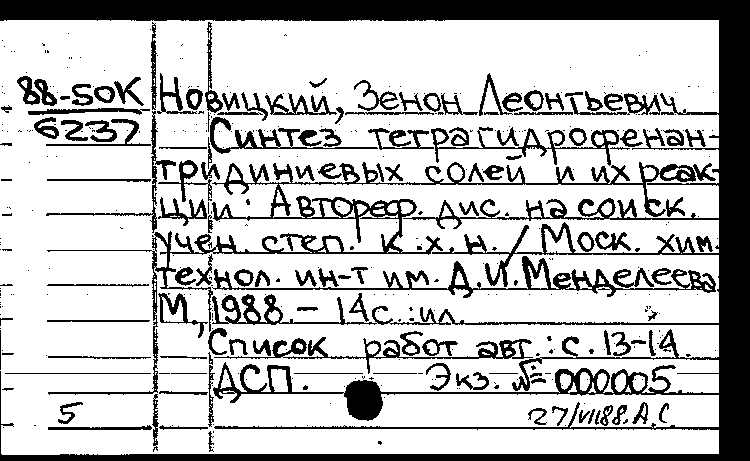 88-50К Новицкий, Зенон Леонтьевич.
6237 Синтез тетрагидрофенан-
тридиниевых солей и их реак-
ции: Автореф. дис. на соиск.
учен. степ. к.х.н. / Моск. хим.
технол. ин-т им. Д.И. Менделеева
М., 1988. – 14с.: ил.
Список работ авт.: с. 13-14.
ДСП. Экз. № 000005.
5 27/VII88. А.С.